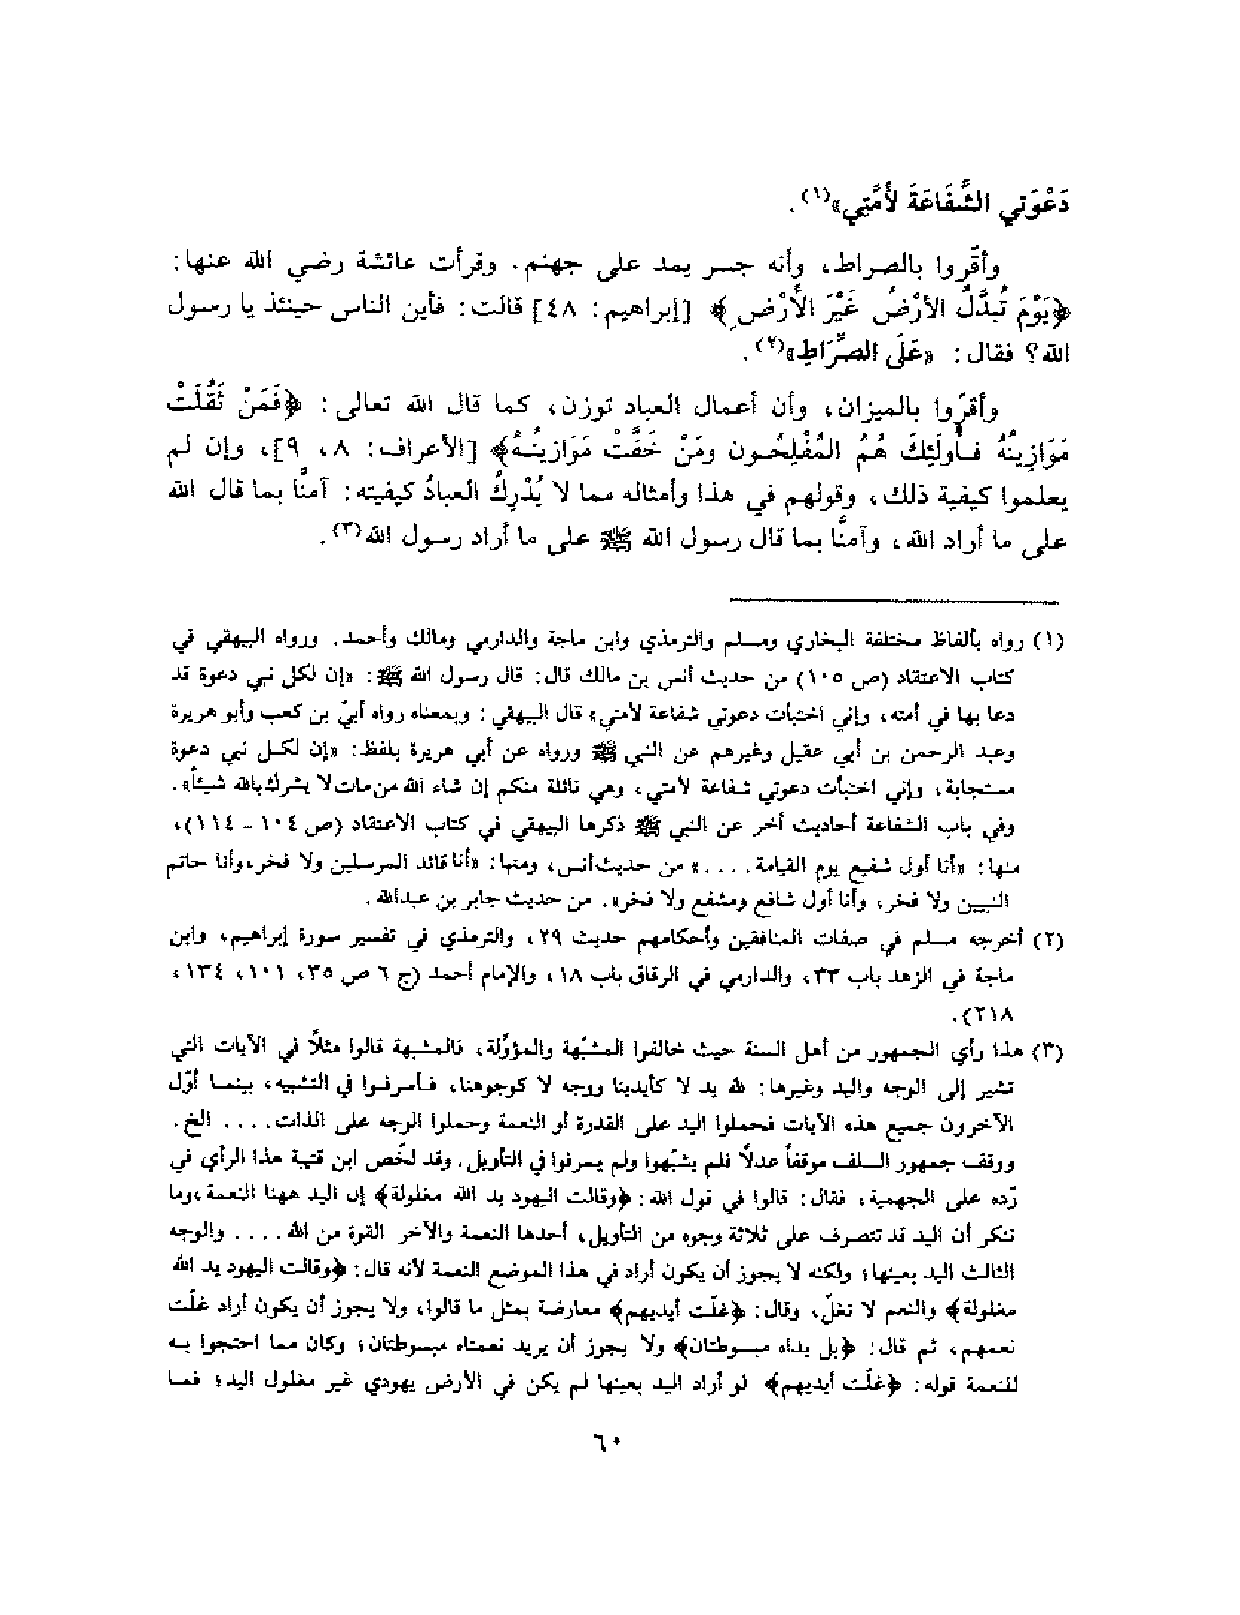 دَعْوَتي الشَّفَاعَةَ لأمَّتِي»(١).
وأقّروا بالصراط، وأنه جسر يمد على جهنم. وقرأت عائشة رضي الله عنها:
﴿يَوْمَ تُبدَّلُ الأرْضُ غَيْرَ الأَرْضِ﴾ [إبراهيم: ٤٨] قالت: فأين الناس حينئذ يا رسول
الله؟ فقال: «عَلَى الصِّرَاطِ»(٢).
وأقرّوا بالميزان، وأن أعمال العباد توزن، كما قال الله تعالى: ﴿فَمَنْ ثَقُلَتْ
مَوَازِينُهُ فأولَئِكَ هُمُ المُفْلِحُون ومَنْ خَفَّتْ مَوَازينُهُ﴾ [الأعراف: ٨، ٩]، وإن لم
يعلموا كيفية ذلك، وقولهم في هذا وأمثاله مما لا يُدْرِكُ العبادُ كيفيته: آمنَّا بما قال الله
على ما أراد الله، وآمنَّا بما قال رسول الله ﷺ على ما أراد رسول الله(٣).
(١) رواه بألفاظ مختلفة البخاري ومسلم والترمذي وابن ماجة والدارمي ومالك وأحمد. ورواه البيهقي في
كتاب الاعتقاد (ص ١٠٥) من حديث أنس بن مالك قال: قال رسول الله ﷺ: «إن لكل نبي دعوة قد
دعا بها في أمته، وإني اختبأت دعوتي شفاعة لأمتي» قال البيهقي: وبمعناه رواه أبيّ بن كعب وأبو هريرة
وعبد الرحمن بن أبي عقيل وغيرهم عن النبي ﷺ ورواه عن أبي هريرة بلفظ: «إن لكل نبي دعوة
مستجابة، وإني اختبأت دعوتي شفاعة لأمتي، وهي نائلة منكم إن شاء الله من مات لا يشرك بالله شيئاً».
وفي باب الشفاعة أحاديث أخر عن النبي ﷺ ذكرها البيهقي في كتاب الاعتقاد (ص ١٠٤ - ١١٤)،
منها: «أنا أول شفيع يوم القيامة....» من حديث أنس، ومنها: «أنا قائد المرسلين ولا فخر، وأنا خاتم
النبيين ولا فخر، وأنا أول شافع ومشفع ولا فخر». من حديث جابر بن عبدالله.
(٢) أخرجه مسلم في صفات المنافقين وأحكامهم حديث ٢٩، والترمذي في تفسير سورة إبراهيم، وابن
ماجة في الزهد باب ٣٣، والدارمي في الرقاق باب ١٨، والإمام أحمد (ج ٦ ص ٣٥، ١٠١، ١٣٤،
٢١٨).
(٣) هذا رأي الجمهور من أهل السنة حيث خالفوا المشبّهة والمؤوّلة، فالمشبهة قالوا مثلاً في الآيات التي
تشير إلى الوجه واليد وغيرها: لله يد لا كأيدينا ووجه لا كوجوهنا، فأسرفوا في التشبيه، بينما أوّل
الآخرون جميع هذه الآيات فحملوا اليد على القدرة أو النعمة وحملوا الوجه على الذات.... الخ.
ووقف جمهور السلف موقفاً عدلاً فلم يشبّهوا ولم يسرفوا في التأويل. وقد لخّص ابن قتيبة هذا الرأي في
رّده على الجهمية، فقال: قالوا في قول الله: ﴿وقالت اليهود يد الله مغلولة﴾ إن اليد ههنا النعمة، وما
ننكر أن اليد قد تتصرف على ثلاثة وجوه من التأويل، أحدها النعمة والآخر القوة من الله.... والوجه
الثالث اليد بعينها؛ ولكنه لا يجوز أن يكون أراد في هذا الموضع النعمة لأنه قال: ﴿وقالت اليهود يد الله
مغلولة﴾ والنعم لا تغلّ، وقال: ﴿غلّت أيديهم﴾ معارضة بمثل ما قالوا، ولا يجوز أن يكون أراد غلّت
نعمهم، ثم قال: ﴿بل يداه مبسوطتان﴾ ولا يجوز أن يريد نعمتاه مبسوطتان؛ وكان مما احتجوا به
للنعمة قوله: ﴿غلّت أيديهم﴾ لو أراد اليد بعينها لم يكن في الأرض يهودي غير مغلول اليد؛ فما
٦٠